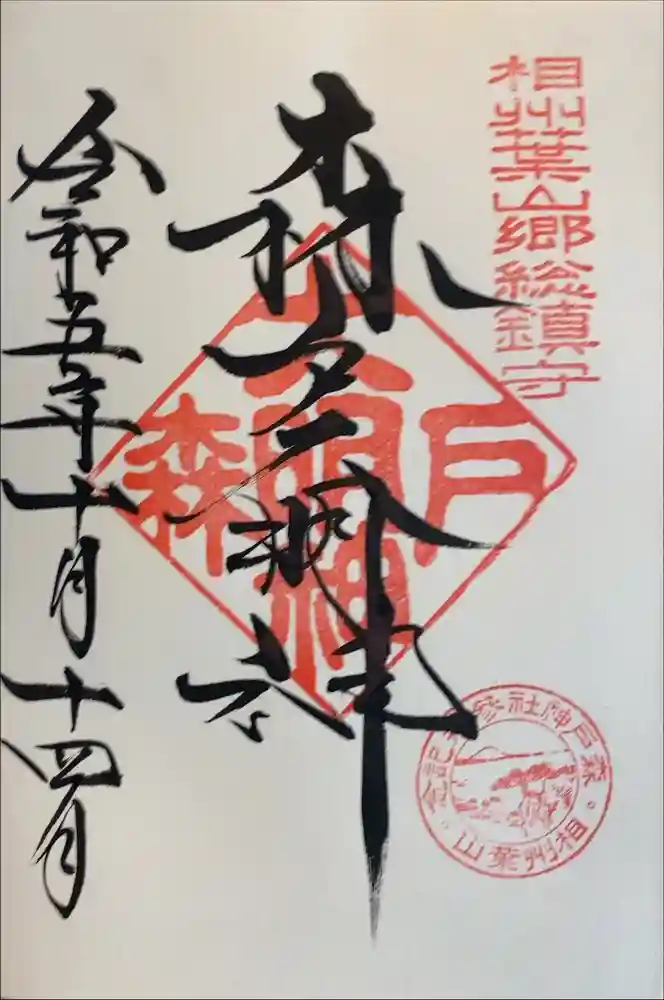 相州葉山郷総鎮守
森戸大明神
森戸大明神
令和五年十月十四日
森戸神社参拝記念
相州葉山